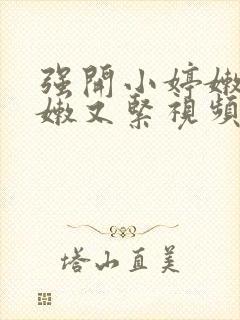 强開小婷嫩
嫩又緊視頻
塔山直美